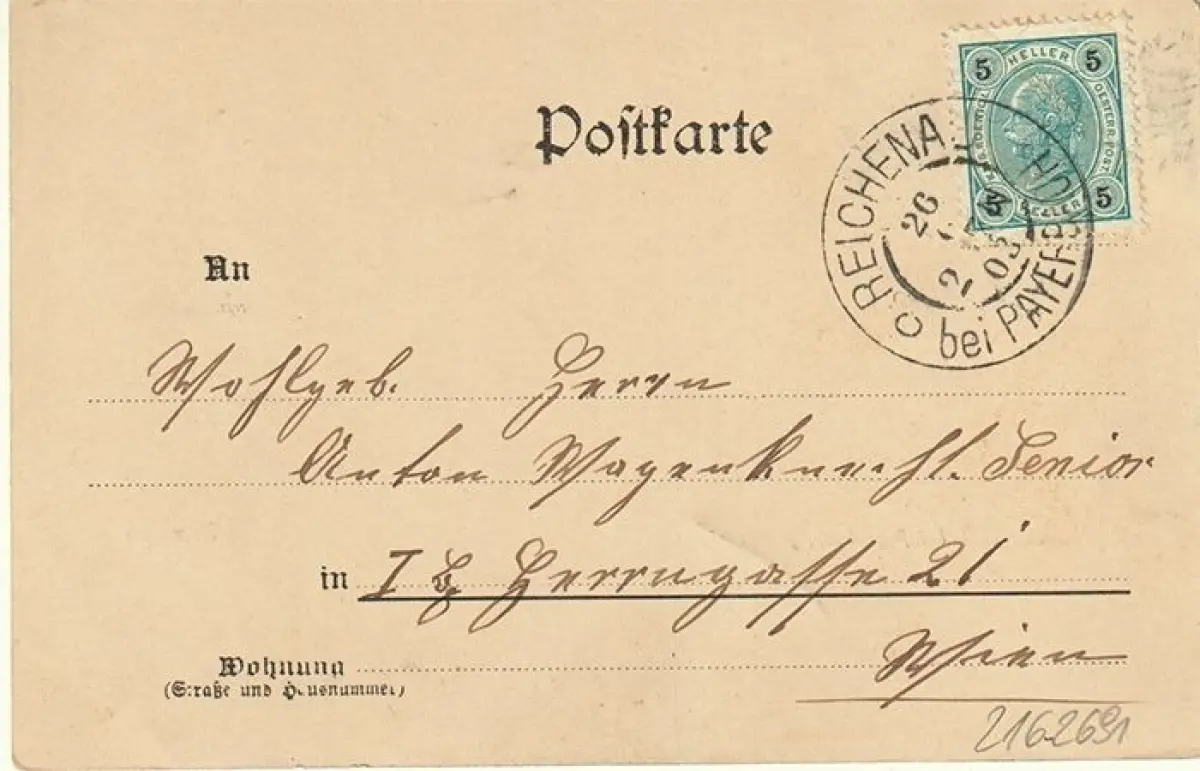 Postkarte
5 HELLER 5
OESTERR. POST
5 HELLER 5
REICHENA
bei PAYERB
26
2 03
An
Wohlgeb. Herrn
Anton Wagenknecht. Senior
in I Herrngasse 21
Wien
Wohnung
(Straße und Hausnummer)
2162691